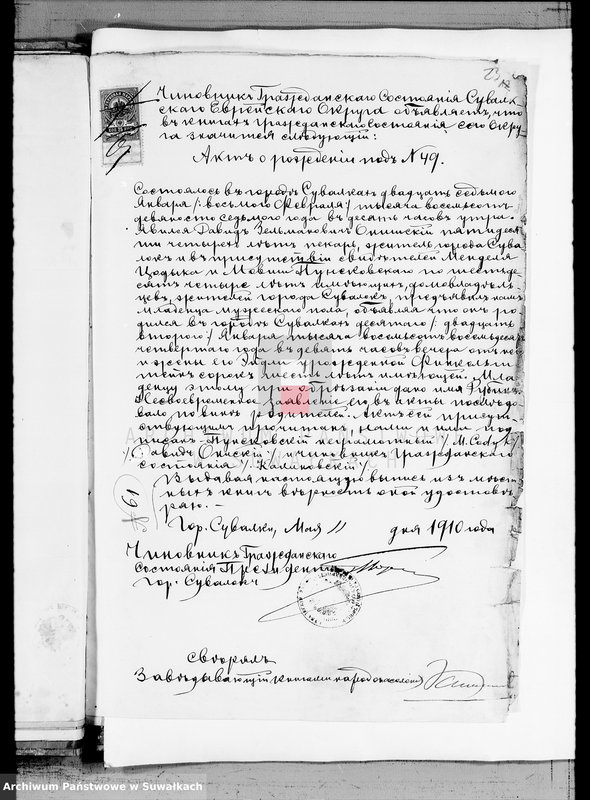 23
Чиновникъ Гражданскаго Состоянія Сувалк-
скаго Еврейскаго Округа объявляетъ, что
въ книгахъ гражданскаго состоянія сего Окру-
га значится слѣдующій:
Актъ о рожденіи подъ N 49.
Состоялось въ городѣ Сувалкахъ двадцать седьмого
Января /: восьмого Февраля :/ тысяча восемьсотъ
девяносто седьмого года въ десять часовъ утра.
Явился Давидъ Зельмановичъ Опинскій пятидеся-
ти четырехъ лѣтъ пекарь, житель города Сува-
локъ и въ присутствіи свидѣтелей Менделя
Цодыка и Мовши Пунсковскаго по шестьде-
сятъ четыре лѣтъ имѣющихъ, домовладѣль-
цевъ, жителей города Сувалокъ, предъявилъ намъ
младенца мужескаго пола, объявляя что онъ ро-
дился въ городѣ Сувалкахъ десятаго /: двадцать
второго :/ Января тысяча восемьсотъ восемьдесятъ
четвертаго года въ девять часовъ вечера отъ
жены его урожденной
сорокъ шесть лѣтъ имѣющей. Мла-
денцу этому при обрѣзаніи дано имя Рувинъ.
Несвоевременное заявленіе его въ акты послѣдо-
вало по винѣ родителей. Актъ сей присут-
ствующимъ прочитанъ, нами и ими под-
писанъ - Пунсковскій неграмотный /:/ M. Codyk /:/
/:/ Давидъ Опинскій /:/ и чиновникъ Гражданскаго
состоянія /:/ Калиновскій /:/
Выдавая настоящую выпись изъ мѣст-
ныхъ книгъ вѣрность оной удостовѣ-
ряю. -
Гор. Сувалки, Мая 11 дня 1910 года
Чиновникъ Гражданскаго
состоянія Президентъ
гор. Сувалокъ
Свѣрялъ
Завѣдывающій книгами народонаселенія
Archiwum Państwowe w Suwałkach